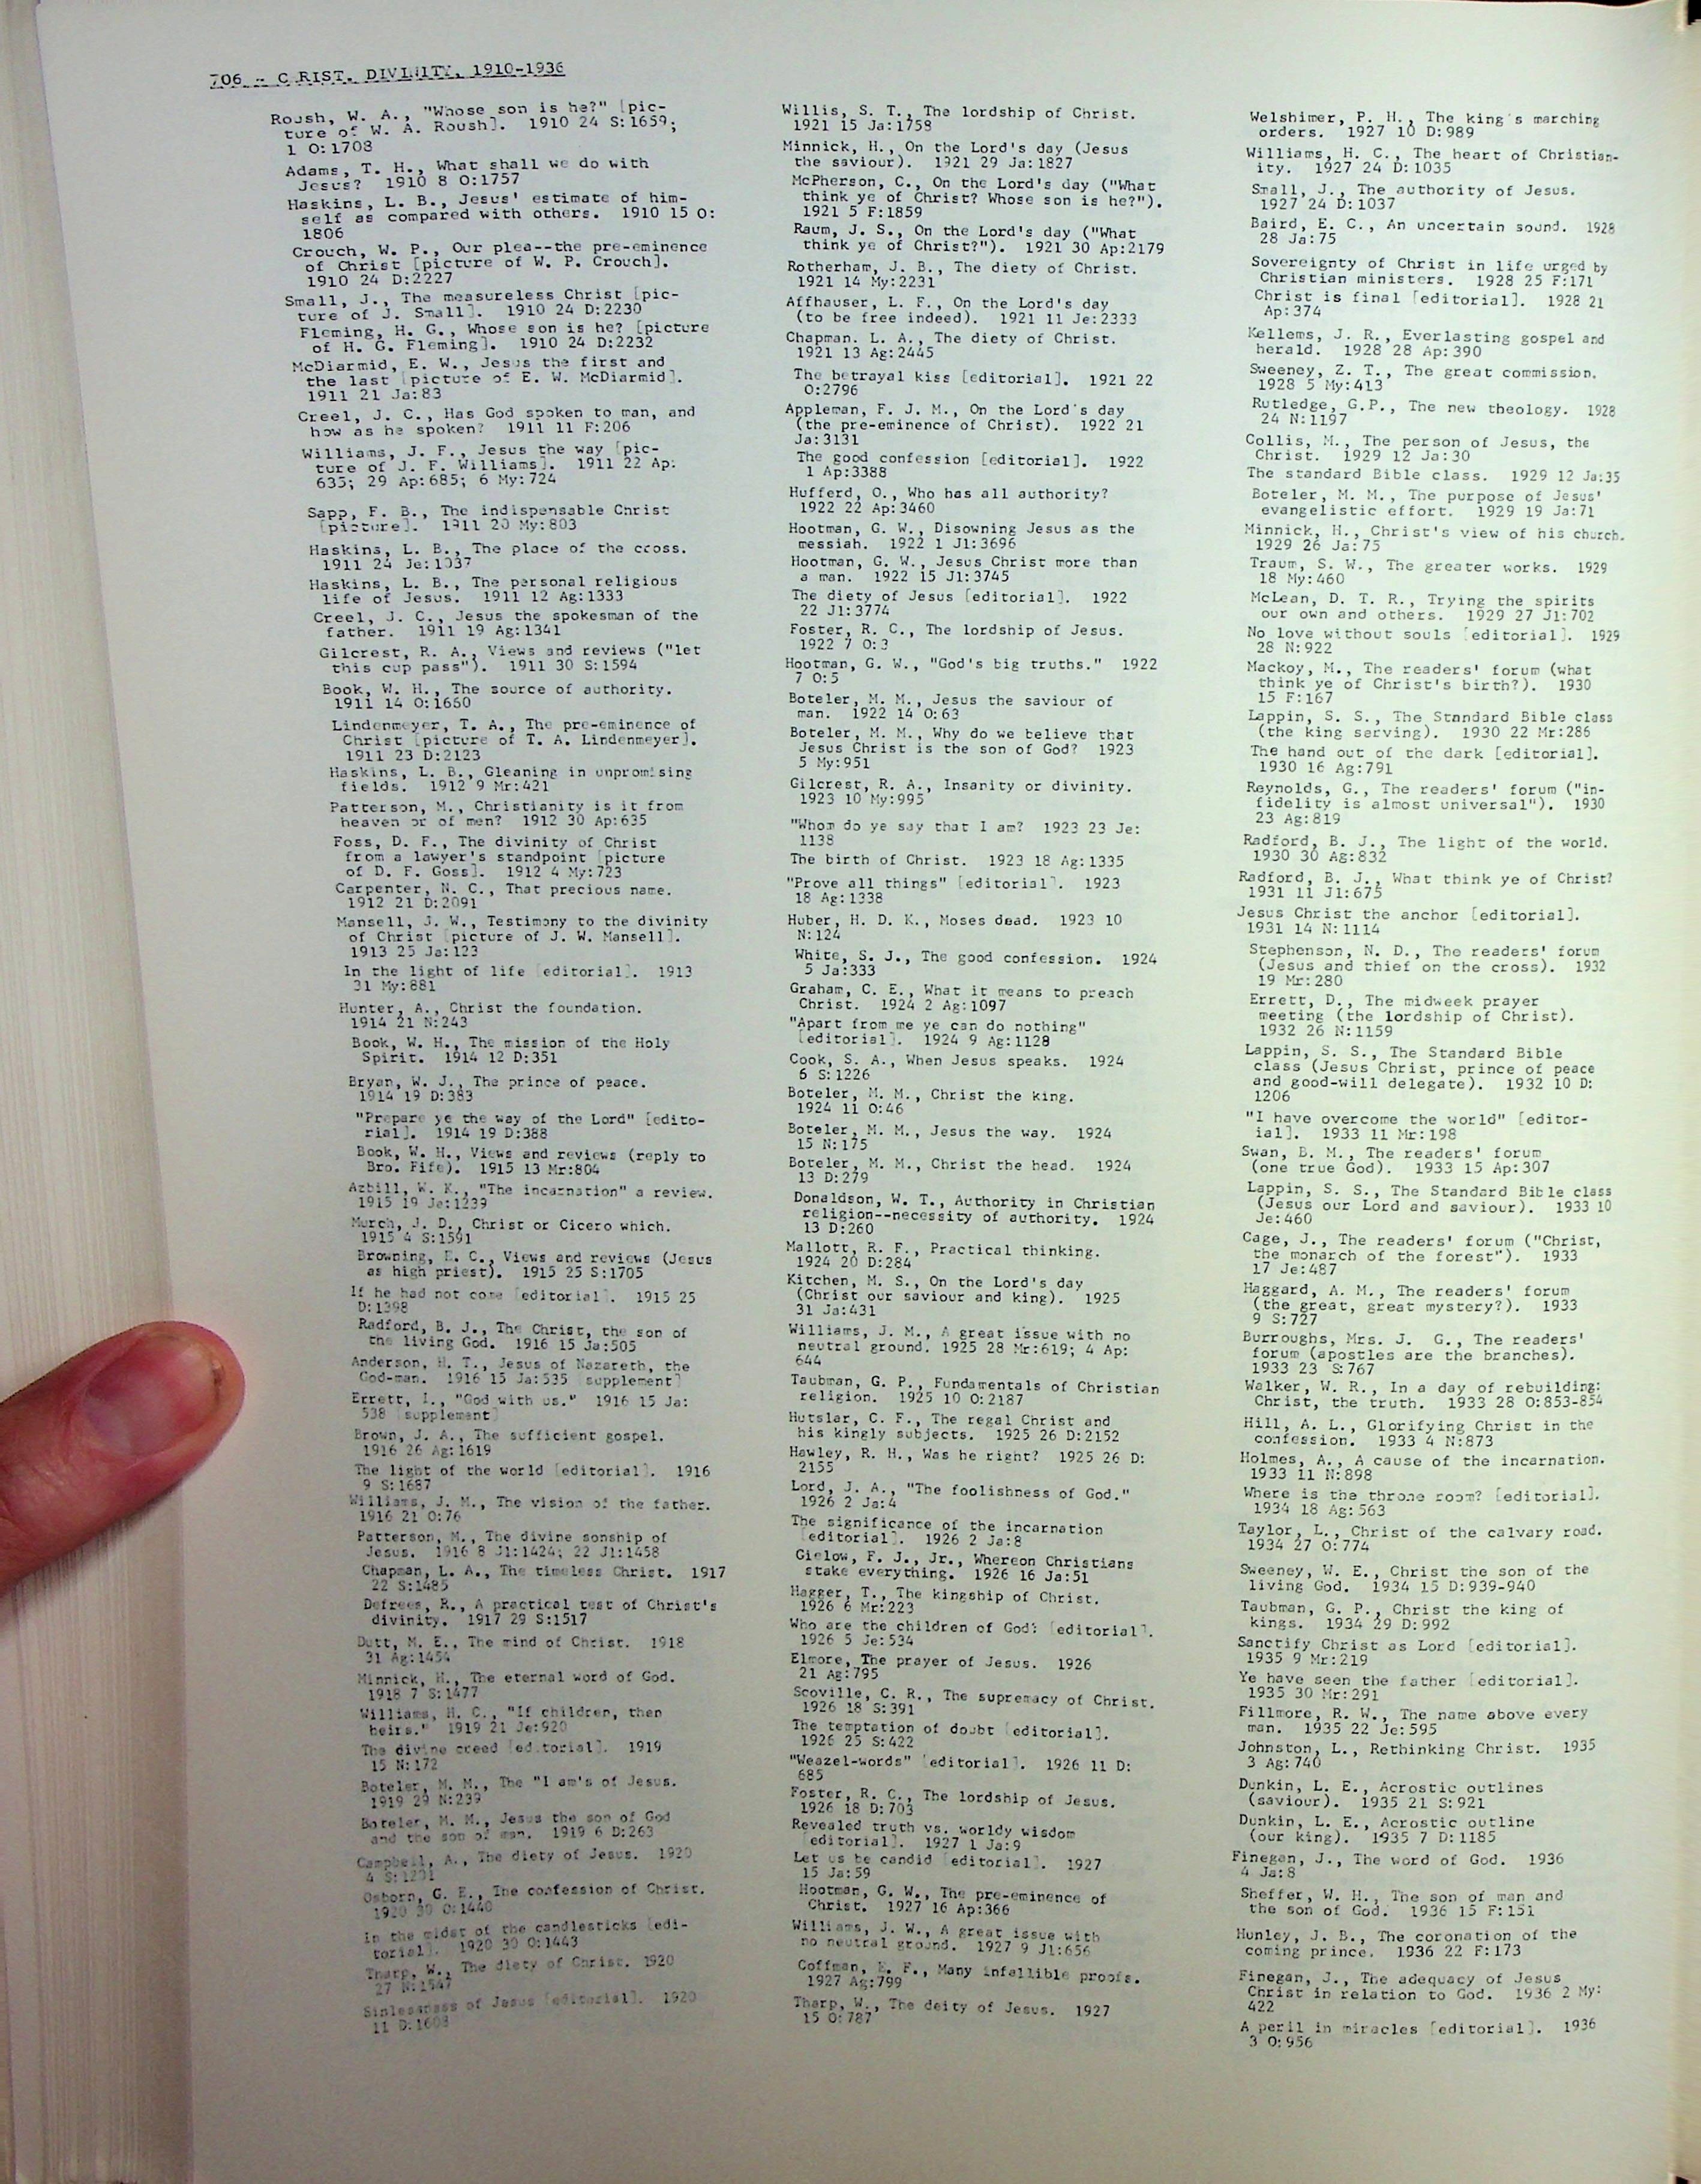 706 - C RIST. DIVINITY, 1910-1936
Roush, W. A., "Whose son is he?" [pic-
ture of W. A. Roush]. 1910 24 S:1659;
1 O:1708
Adams, T. H., What shall we do with
Jesus? 1910 8 O:1757
Haskins, L. B., Jesus' estimate of him-
self as compared with others. 1910 15 O:
1806
Crouch, W. P., Our plea--the pre-eminence
of Christ [picture of W. P. Crouch].
1910 24 D:2227
Small, J., The measureless Christ [pic-
ture of J. Small]. 1910 24 D:2230
Fleming, H. G., Whose son is he? [picture
of H. G. Fleming]. 1910 24 D:2232
McDiarmid, E. W., Jesus the first and
the last [picture of E. W. McDiarmid].
1911 21 Ja:83
Creel, J. C., Has God spoken to man, and
how as he spoken? 1911 11 F:206
Williams, J. F., Jesus the way [pic-
ture of J. F. Williams]. 1911 22 Ap:
635; 29 Ap:685; 6 My:724
Sapp, F. B., The indispensable Christ
[picture]. 1911 20 My:803
Haskins, L. B., The place of the ccoss.
1911 24 Je:1037
Haskins, L. B., The personal religious
life of Jesus. 1911 12 Ag:1333
Creel, J. C., Jesus the spokesman of the
father. 1911 19 Ag:1341
Gilcrest, R. A., Views and reviews ("let
this cup pass"). 1911 30 S:1594
Book, W. H., The source of authority.
1911 14 O:1660
Lindenmeyer, T. A., The pre-eminence of
Christ [picture of T. A. Lindenmeyer].
1911 23 D:2123
Haskins, L. B., Gleaning in unpromising
fields. 1912 9 Mr:421
Patterson, M., Christianity is it from
heaven or of men? 1912 30 Ap:635
Foss, D. F., The divinity of Christ
from a lawyer's standpoint [picture
of D. F. Goss]. 1912 4 My:723
Carpenter, N. C., That precious name.
1912 21 D:2091
Mansell, J. W., Testimony to the divinity
of Christ [picture of J. W. Mansell].
1913 25 Ja:123
In the light of life [editorial]. 1913
31 My:881
Hunter, A., Christ the foundation.
1914 21 N:243
Book, W. H., The mission of the Holy
Spirit. 1914 12 D:351
Bryan, W. J., The prince of peace.
1914 19 D:383
"Prepare ye the way of the Lord" [edito-
rial]. 1914 19 D:388
Book, W. H., Views and reviews (reply to
Bro. Fife). 1915 13 Mr:804
Azbill, W. K., "The incarnation" a review.
1915 19 Je:1239
Murch, J. D., Christ or Cicero which.
1915 4 S:1591
Browning, E. C., Views and reviews (Jesus
as high priest). 1915 25 S:1705
If he had not come [editorial]. 1915 25
D:1398
Radford, B. J., The Christ, the son of
the living God. 1916 15 Ja:505
Anderson, H. T., Jesus of Nazareth, the
God-man. 1916 15 Ja:535 [supplement]
Errett, I., "God with us." 1916 15 Ja:
538 [supplement]
Brown, J. A., The sufficient gospel.
1916 26 Ag:1619
The light of the world [editorial]. 1916
9 S:1687
Williams, J. M., The vision of the father.
1916 21 O:76
Patterson, M., The divine sonship of
Jesus. 1916 8 Jl:1424; 22 Jl:1458
Chapman, L. A., The timeless Christ. 1917
22 S:1485
Defrees, R., A practical test of Christ's
divinity. 1917 29 S:1517
Dutt, M. E., The mind of Christ. 1918
31 Ag:1454
Minnick, H., The eternal word of God.
1918 7 S:1477
Williams, H. C., "If children, then
heirs." 1919 21 Je:920
The divine creed [editorial]. 1919
15 N:172
Boteler, M. M., The "I am's of Jesus.
1919 29 N:239
Boteler, M. M., Jesus the son of God
and the son of man. 1919 6 D:263
Campbell, A., The diety of Jesus. 1920
4 S:1231
Osborn, G. E., The confession of Christ.
1920 30 O:1440
In the midst of the candlesticks [edi-
torial]. 1920 30 O:1443
Tharp, W., The diety of Christ. 1920
27 N:1547
Sinlessness of Jesus [editorial]. 1920
11 D:1603
Willis, S. T., The lordship of Christ.
1921 15 Ja:1758
Minnick, H., On the Lord's day (Jesus
the saviour). 1921 29 Ja:1827
McPherson, C., On the Lord's day ("What
think ye of Christ? Whose son is he?").
1921 5 F:1859
Raum, J. S., On the Lord's day ("What
think ye of Christ?"). 1921 30 Ap:2179
Rotherham, J. B., The diety of Christ.
1921 14 My:2231
Affhauser, L. F., On the Lord's day
(to be free indeed). 1921 11 Je:2333
Chapman. L. A., The diety of Christ.
1921 13 Ag:2445
The betrayal kiss [editorial]. 1921 22
O:2796
Appleman, F. J. M., On the Lord's day
(the pre-eminence of Christ). 1922 21
Ja:3131
The good confession [editorial]. 1922
1 Ap:3388
Hufferd, O., Who has all authority?
1922 22 Ap:3460
Hootman, G. W., Disowning Jesus as the
messiah. 1922 1 Jl:3696
Hootman, G. W., Jesus Christ more than
a man. 1922 15 Jl:3745
The diety of Jesus [editorial]. 1922
22 Jl:3774
Foster, R. C., The lordship of Jesus.
1922 7 O:3
Hootman, G. W., "God's big truths." 1922
7 O:5
Boteler, M. M., Jesus the saviour of
man. 1922 14 O:63
Boteler, M. M., Why do we believe that
Jesus Christ is the son of God? 1923
5 My:951
Gilcrest, R. A., Insanity or divinity.
1923 10 My:995
"Whom do ye say that I am? 1923 23 Je:
1138
The birth of Christ. 1923 18 Ag:1335
"Prove all things" [editorial]. 1923
18 Ag:1338
Huber, H. D. K., Moses dead. 1923 10
N:124
White, S. J., The good confession. 1924
5 Ja:333
Graham, C. E., What it means to preach
Christ. 1924 2 Ag:1097
"Apart from me ye can do nothing"
[editorial]. 1924 9 Ag:1128
Cook, S. A., When Jesus speaks. 1924
6 S:1226
Boteler, M. M., Christ the king.
1924 11 O:46
Boteler, M. M., Jesus the way. 1924
15 N:175
Boteler, M. M., Christ the head. 1924
13 D:279
Donaldson, W. T., Authority in Christian
religion--necessity of authority. 1924
13 D:260
Mallott, R. F., Practical thinking.
1924 20 D:284
Kitchen, M. S., On the Lord's day
(Christ our saviour and king). 1925
31 Ja:431
Williams, J. M., A great issue with no
neutral ground. 1925 28 Mr:619; 4 Ap:
644
Taubman, G. P., Fundamentals of Christian
religion. 1925 10 O:2187
Hutslar, C. F., The regal Christ and
his kingly subjects. 1925 26 D:2152
Hawley, R. H., Was he right? 1925 26 D:
2155
Lord, J. A., "The foolishness of God."
1926 2 Ja:4
The significance of the incarnation
[editorial]. 1926 2 Ja:8
Gielow, F. J., Jr., Whereon Christians
stake everything. 1926 16 Ja:51
Hagger, T., The kingship of Christ.
1926 6 Mr:223
Who are the children of God? [editorial].
1926 5 Je:534
Elmore, The prayer of Jesus. 1926
21 Ag:795
Scoville, C. R., The supremacy of Christ.
1926 18 S:391
The temptation of doubt [editorial].
1926 25 S:422
"Weazel-words" [editorial]. 1926 11 D:
685
Foster, R. C., The lordship of Jesus.
1926 18 D:703
Revealed truth vs. worldy wisdom
[editorial]. 1927 1 Ja:9
Let us be candid [editorial]. 1927
15 Ja:59
Hootman, G. W., The pre-eminence of
Christ. 1927 16 Ap:366
Williams, J. W., A great issue with
no neutral ground. 1927 9 Jl:656
Coffman, E. F., Many infallible proofs.
1927 Ag:799
Tharp, W., The deity of Jesus. 1927
15 O:787
Welshimer, P. H., The king's marching
orders. 1927 10 D:989
Williams, H. C., The heart of Christian-
ity. 1927 24 D:1035
Small, J., The authority of Jesus.
1927 24 D:1037
Baird, E. C., An uncertain sound. 1928
28 Ja:75
Sovereignty of Christ in life urged by
Christian ministers. 1928 25 F:171
Christ is final [editorial]. 1928 21
Ap:374
Kellems, J. R., Everlasting gospel and
herald. 1928 28 Ap:390
Sweeney, Z. T., The great commission.
1928 5 My:413
Rutledge, G.P., The new theology. 1928
24 N:1197
Collis, M., The person of Jesus, the
Christ. 1929 12 Ja:30
The standard Bible class. 1929 12 Ja:35
Boteler, M. M., The purpose of Jesus'
evangelistic effort. 1929 19 Ja:71
Minnick, H., Christ's view of his church.
1929 26 Ja:75
Traum, S. W., The greater works. 1929
18 My:460
McLean, D. T. R., Trying the spirits
our own and others. 1929 27 Jl:702
No love without souls [editorial]. 1929
28 N:922
Mackoy, M., The readers' forum (what
think ye of Christ's birth?). 1930
15 F:167
Lappin, S. S., The Standard Bible class
(the king serving). 1930 22 Mr:286
The hand out of the dark [editorial].
1930 16 Ag:791
Reynolds, G., The readers' forum ("in-
fidelity is almost universal"). 1930
23 Ag:819
Radford, B. J., The light of the world.
1930 30 Ag:832
Radford, B. J., What think ye of Christ?
1931 11 Jl:675
Jesus Christ the anchor [editorial].
1931 14 N:1114
Stephenson, N. D., The readers' forum
(Jesus and thief on the cross). 1932
19 Mr:280
Errett, D., The midweek prayer
meeting (the lordship of Christ).
1932 26 N:1159
Lappin, S. S., The Standard Bible
class (Jesus Christ, prince of peace
and good-will delegate). 1932 10 D:
1206
"I have overcome the world" [editor-
ial]. 1933 11 Mr:198
Swan, B. M., The readers' forum
(one true God). 1933 15 Ap:307
Lappin, S. S., The Standard Bible class
(Jesus our Lord and saviour). 1933 10
Je:460
Cage, J., The readers' forum ("Christ,
the monarch of the forest"). 1933
17 Je:487
Haggard, A. M., The readers' forum
(the great, great mystery?). 1933
9 S:727
Burroughs, Mrs. J. G., The readers'
forum (apostles are the branches).
1933 23 S:767
Walker, W. R., In a day of rebuilding:
Christ, the truth. 1933 28 O:853-854
Hill, A. L., Glorifying Christ in the
confession. 1933 4 N:873
Holmes, A., A cause of the incarnation.
1933 11 N:898
Where is the throne room? [editorial].
1934 18 Ag:563
Taylor, L., Christ of the calvary road.
1934 27 O:774
Sweeney, W. E., Christ the son of the
living God. 1934 15 D:939-940
Taubman, G. P., Christ the king of
kings. 1934 29 D:992
Sanctify Christ as Lord [editorial].
1935 9 Mr:219
Ye have seen the father [editorial].
1935 30 Mr:291
Fillmore, R. W., The name above every
man. 1935 22 Je:595
Johnston, L., Rethinking Christ. 1935
3 Ag:740
Dunkin, L. E., Acrostic outlines
(saviour). 1935 21 S:921
Dunkin, L. E., Acrostic outline
(our king). 1935 7 D:1185
Finegan, J., The word of God. 1936
4 Ja:8
Sheffer, W. H., The son of man and
the son of God. 1936 15 F:151
Hunley, J. B., The coronation of the
coming prince. 1936 22 F:173
Finegan, J., The adequacy of Jesus
Christ in relation to God. 1936 2 My:
422
A peril in miracles [editorial]. 1936
3 O:956